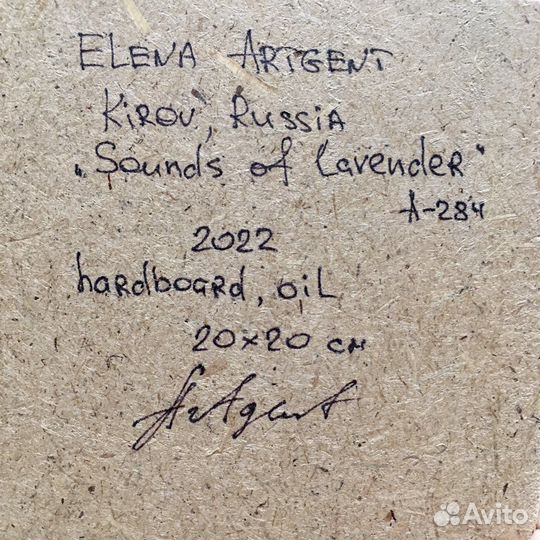 ELENA ARTGENT
Kirov, Russia
„Sounds of Lavender"
A-284
2022
hardboard, oil
20×20 см
Artgent
Avito